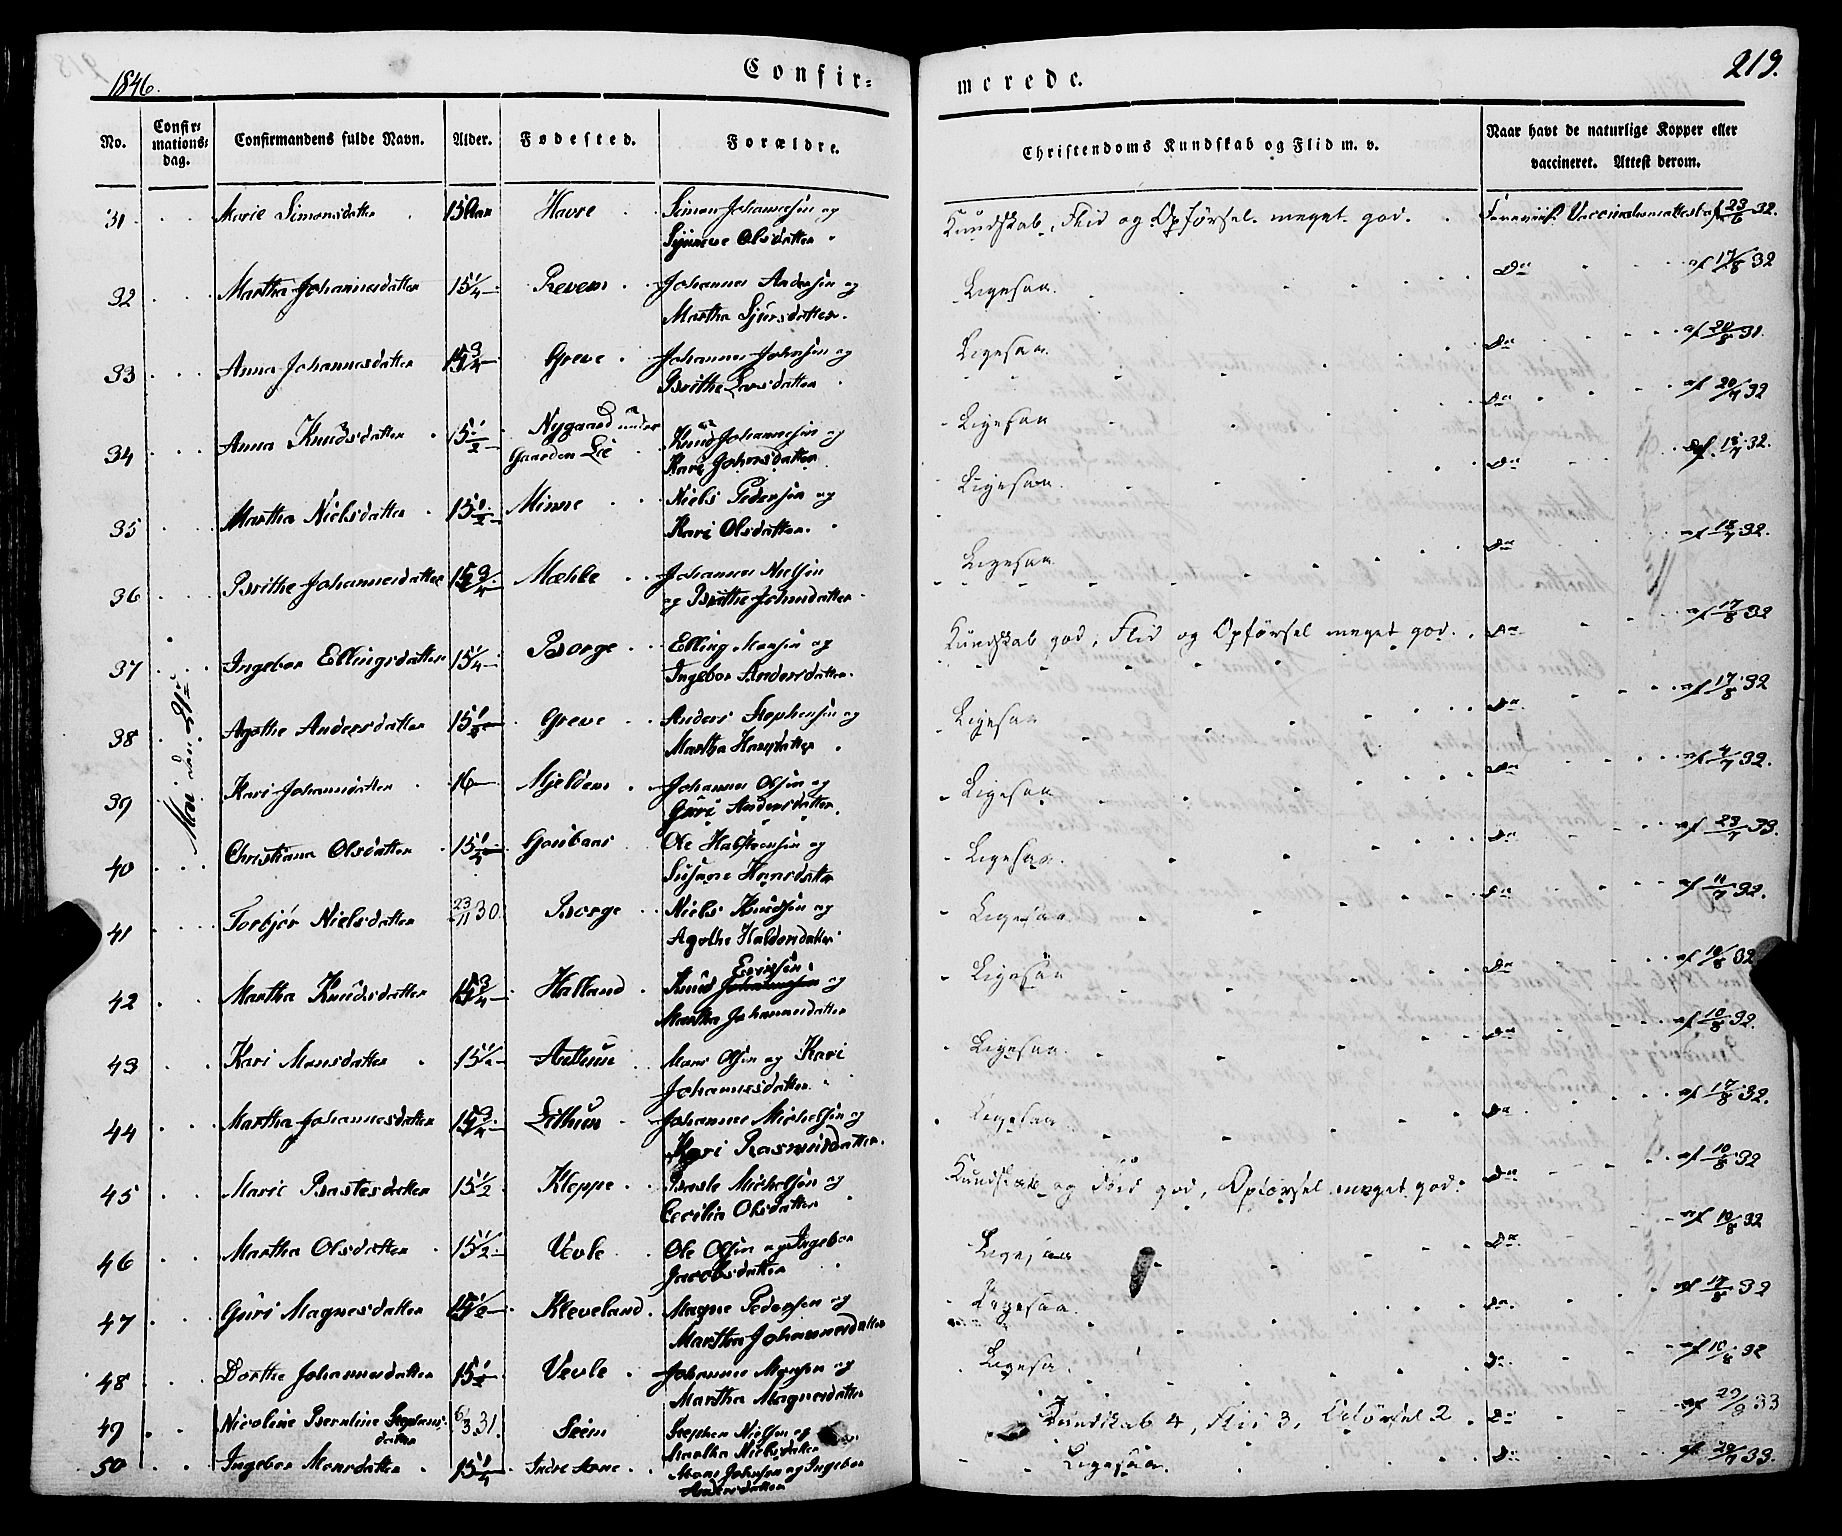 1846.
Confir=
merede.
219.
No.
Confir=
mations=
dag.
Confirmandens fulde Navn.
Alder.
Fødested.
Forældre.
Christendoms Kundskab og Flid m. v.
Naar havt de naturlige Kopper eller
vaccineret. Attest derom.
Mai den
31 Marie Simonsdatter 15 Aar Havre Simon Johannessen og
Synneve Olsdatter
Kundskab, Flid og Opførsel meget god. Vaccinationsattest af 23/6 32.
32 Martha Johannesdatter 15 1/4 Revem Johannes Andersen og
Martha Sjursdatter.
Ligesaa. Do af 17/8 32
33 Anna Johannesdatter 15 3/4 Greve Johannes Johnsen og
Brithe Larsdatter
Ligesaa. Do af 20/8 31.
34 Anna Knudsdatter 15 1/2 Nygaard under
Gaarden Lie Knud Johannessen og
Kari Johnsdatter
Ligesaa Do af 20/7 32
35 Martha Nielsdatter 15 1/2 Minne Niels Pedersen og
Kari Olsdatter.
Ligesaa. Do af 18/7 32.
36 Brithe Johannesdatter 15 3/4 Mæhle Johannes Nielsen
og Brithe Johnsdatter
Ligesaa. Do af 18/7 32.
37 Ingebor Ellingsdatter 15 1/4 Borge Elling Monsen og
Ingebor Andersdatter.
Kundskab god, Flid og Opførsel meget god. Do af 17/8 32
38 Agathe Andersdatter 15 Greve Anders Stephensen og
Martha Hansdatter
Ligesaa Do af 17/8 32
39 Kari Johannesdatter 16 Mjeldem Johannes Olsen og
Guri Andersdatter.
Ligesaa Do af 4/7 32.
40 Christiana Olsdatter 15 Ole Halsteensen og
Susane Hansdatter
Ligesaa. Do af 23/7 33.
41 Torbjør Nielsdatter 23/11 30. Borge Niels Knudsen og
Agathe Haldorsdatter
Ligesaa Do af 11/7 32.
42 Martha Knudsdatter 15 3/4 Halland Knud Johannessen Ericsen og
Martha Johannesdatter
Ligesaa Do af 10/8 32
43 Kari Monsdatter 15 1/2 Mons Olsen og Kari
Johannesdatter
Ligesaa. Do af 10/8 32.
44 Martha Johannesdatter 15 3/4 Lethun Johannes Michelsen og
Kari Rasmusdatter.
Ligesaa Do af 17/8 32.
45 Marie Bastesdatter 15 1/2 Kleppe Baste Michelsen og
Cecilia Olsdatter
Kundskab og Flid god, Opførsel meget god. Do af 10/8 32
46 Martha Olsdatter 15 1/2 Vevle Ole Olsen og Ingebor
Jacobsdatter
Ligesaa Do af 10/8 32
47 Guri Magnesdatter 15 1/2 Kleveland Magne Pedersen og
Martha Johannesdatter
Ligesaa. Do af 17/8 32
48 Dorthe Johannesdatter 15 1/2 Vevle Johannes Monsen og
Martha Magnesdatter
Ligesa. Do af 10/8 32
49 Nicoline Berntine Stephans=
datter 6/3 31. Seim Stephen Nielsen og
Martha Nielsdatter
Kundskab 4, Flid 3, Opførsel 2 Do
50 Ingebor Monsdatter 15 1/4 Indre Arne Mons Johnsen og Ingebor
Andersdatter
Ligesaa. Do